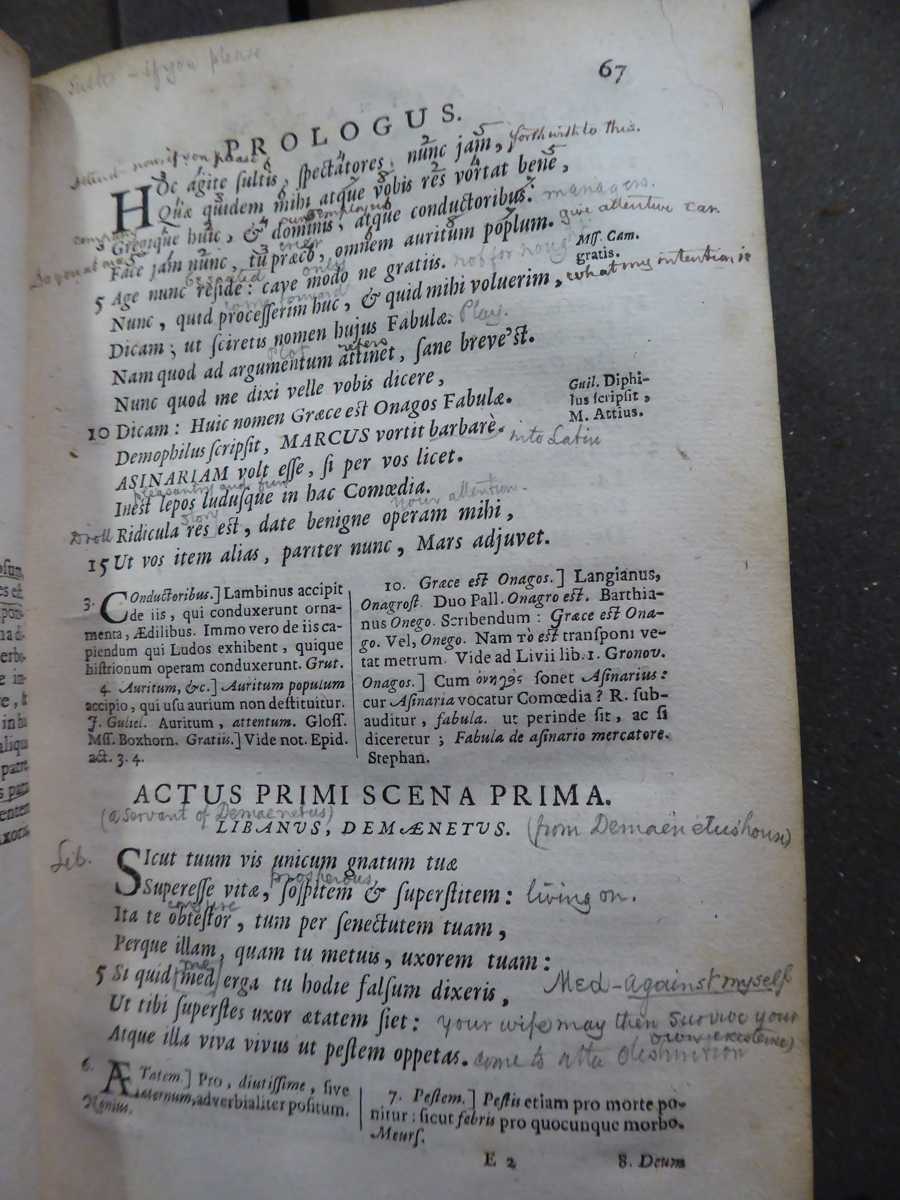 sultis - if you please
67
PROLOGUS.
Attend now, if you please
HOc agite sultis, spectatores, nunc jam, forthwith to this.
Quæ quidem mihi atque vobis res vortat bene,
company
Gregique huic, & dominis, atque conductoribus: managers.
Face jam nunc, tu præco, omnem auritum poplum. give attentive ear
be seated only
5 Age nunc reside: cave modo ne gratiis. not for nought
Mss. Cam.
gratis.
come forward
Nunc, quid processerim huc, & quid mihi voluerim, what my intention is
Dicam; ut sciretis nomen hujus Fabulæ. Play.
Plot refers
Nam quod ad argumentum attinet, sane breve'st.
Nunc quod me dixi velle vobis dicere,
10 Dicam: Huic nomen Græce est Onagos Fabulæ.
Guil. Diphi-
lus scripsit,
M. Attius.
Demophilus scripsit, MARCUS vortit barbarè. into Latin
ASINARIAM volt esse, si per vos licet.
pleasantry and fun
Inest lepos ludusque in hac Comœdia.
story your attention.
Droll Ridicula res est, date benigne operam mihi,
15 Ut vos item alias, pariter nunc, Mars adjuvet.
3. COnductoribus.] Lambinus accipit
de iis, qui conduxerunt orna-
menta, Ædilibus. Immo vero de iis ca-
piendum qui Ludos exhibent, quique
histrionum operam conduxerunt. Grut.
4. Auritum, &c.] Auritum populum
accipio, qui usu aurium non destituitur.
J. Guliel. Auritum, attentum. Gloss.
Mss. Boxhorn. Gratiis.] Vide not. Epid.
act. 3. 4.
10. Græce est Onagos.] Langianus,
Onagrost. Duo Pall. Onagro est. Barthia-
nus Onego. Scribendum: Græce est Ona-
go. Vel, Onego. Nam τὸ est transponi ve-
tat metrum. Vide ad Livii lib. 1. Gronov.
Onagos.] Cum ὀνηγὸς sonet Asinarius:
cur Asinaria vocatur Comœdia? R. sub-
auditur, fabula. ut perinde sit, ac si
diceretur; Fabula de asinario mercatore.
Stephan.
ACTUS PRIMI SCENA PRIMA.
(a servant of Demaenetus)
LIBANUS, DEMÆNETUS. (from Demaenetus' house)
Lib. SIcut tuum vis unicum gnatum tuæ
prosperous
Superesse vitæ, sospitem & superstitem: living on.
conjure
Ita te obtestor, tum per senectutem tuam,
Perque illam, quam tu metuis, uxorem tuam:
me
5 Si quid [med] erga tu hodie falsum dixeris, Med - against myself
Ut tibi superstes uxor ætatem siet: your wife may then survive your
own existence)
Atque illa viva vivus ut pestem oppetas. come to utter destruction
6. ÆTatem.] Pro, diutissime, sive
æternum, adverbialiter positum.
Nonius.
7. Pestem.] Pestis etiam pro morte po-
nitur: sicut febris pro quocunque morbo.
Meurs.
E 2 8. Deum